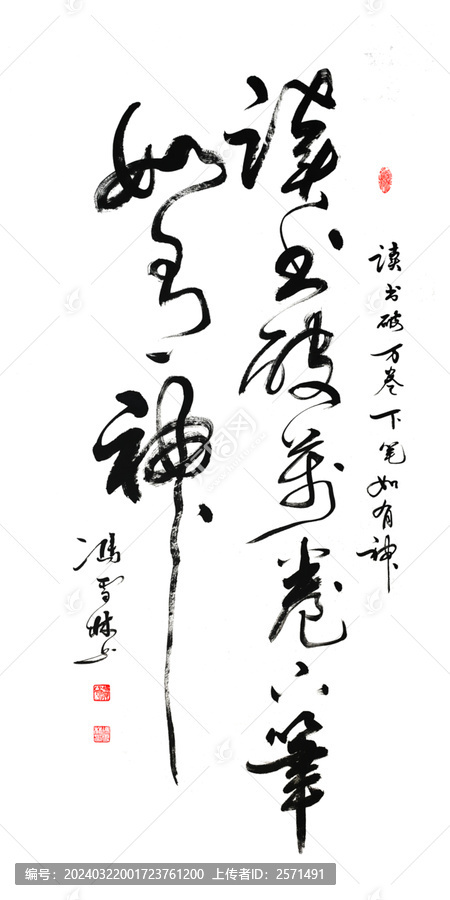 读书破万卷下笔如有神
读书破萬卷下筆
如有神
冯雪林书
编号：20240322001723761200 上传者ID：2571491